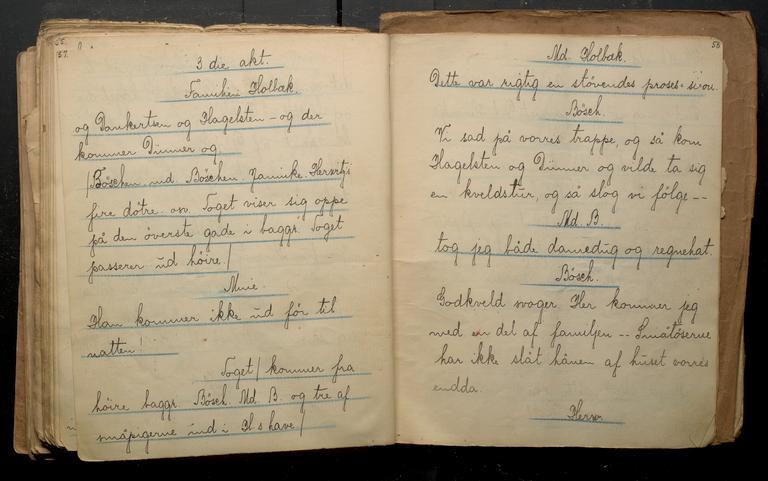 57.
3 die akt.
Familien Holbak.
og Dankertsen og Hagelsten – og der
kommer Dünner og
/Böschen md Böschen. Jamike.
fire dötre. ov. Toget viser sig oppe
på den överste gade i baggr. Toget
passerer ud höire /
Mine.
Han kommer ikke ud för til
natten!
Toget / kommer fra
höire baggr. Bösch. Md. B. og tre af
småpigerne ind i H.s have /
58
Md. Holbak.
Dette var rigtig en stövendes proses-siou.
Bösch.
Vi sad på vorres trappe, og så kom
Hagelsten og Dünner og vilde ta sig
en kveldstür, og så slog vi fölge --
Md. B.
tog jeg både damedug og regnehat.
Bösch.
Godkveld svoger. Her kommer jeg
med en del af familjen -- Småtöserne
har ikke slåt hånen af huset vorres
endda.